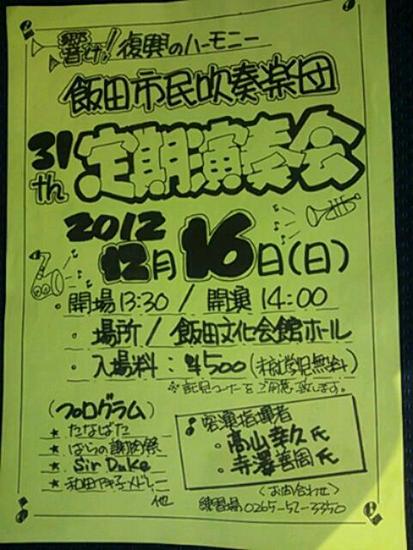 響け!復興のハーモニー
飯田市民吹奏楽団
31th
定期演奏会
2012
12月16日(日)
・開場13:30 / 開演14:00
・場所 / 飯田文化会館ホール
・入場料:¥500(未就学児無料)
※託児コーナーをご用意致します。
(プログラム)
★ たなばた
★ ばらの謝肉祭
★ Sir Duke
★ 和田アキ子メドレー
他
客演指揮者
・高山幸久氏
・寺澤善周氏
〈お問い合わせ〉
練習場 0265-52-3350